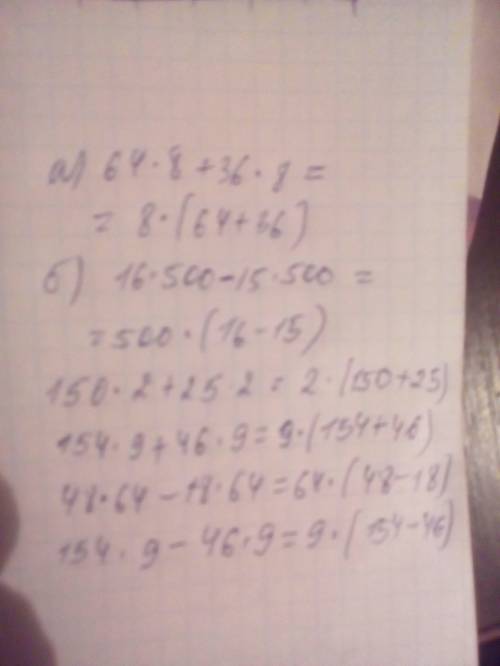 а) 64·8+36·8=
= 8·(64+36)
б) 16·500-15·500 =
=500·(16-15)
150·2+25·2=2·(150+25)
154·9+46·9=9·(154+46)
48·64-18·64=64·(48-18)
154·9-46·9=9·(154-46)